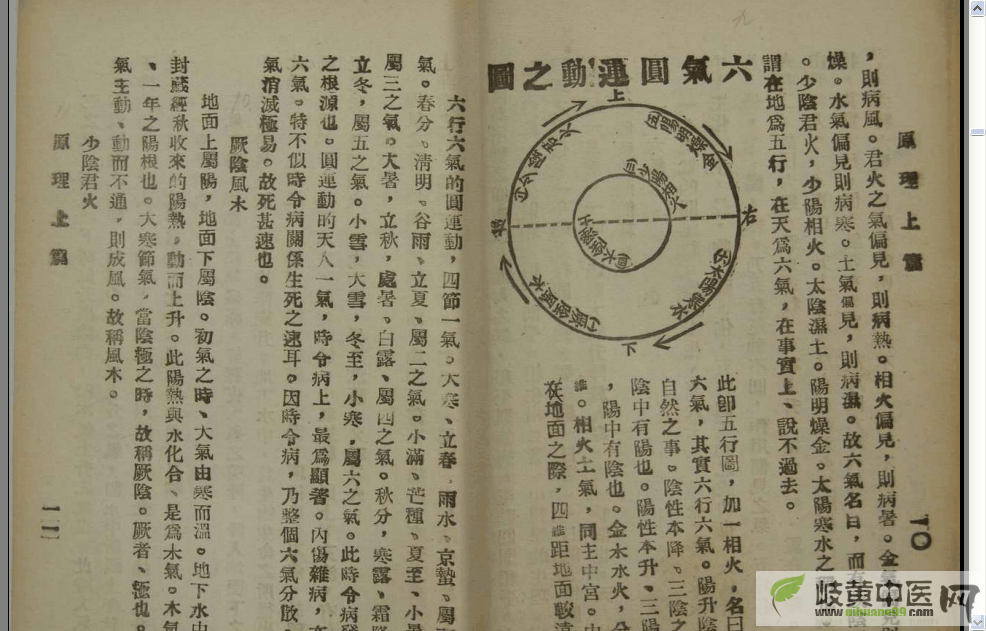 原理上篇
一〇
，則病風。君火之氣偏見，則病熱。相火偏見，則病暑。金
燥。水氣偏見則病寒。土氣偏見，則病濕。故六氣名曰，而
。少陰君火，少陽相火。太陰濕土。陽明燥金。太陽寒水之
謂在地爲五行，在天爲六氣，在事實上、說不過去。
六氣圓運動之圖
上
右
下
此卽五行圖，加一相火，名曰
六氣，其實六行六氣。陽升陰
自然之事。陰性本降、三陰之
陰中有陽也。陽性本升、三陽
，陽中有陰也。金木水火，分
。相火土氣，同主中宮。中
在地面之際，四維距地面較遠
六行六氣的圓運動，四節一氣。大寒、立春，雨水、京蟄、屬
氣。春分、清明、谷雨、立夏、屬二之氣。小滿、芒種、夏至、小暑
屬三之氣。大暑，立秋，處暑、白露、屬四之氣。秋分，寒露、霜降
立冬，屬五之氣。小雪，大雪，冬至，小寒，屬六之氣。此時令病發
之根源也。圓運動的天人一氣，時令病上，最爲顯著。內傷雜病，亦
六氣。特不似時令病關係生死之速耳。因時令病，乃整個六氣分散，
氣消滅極易。故死甚速也。
厥陰風木
地面上屬陽，地面下屬陰。初氣之時、大氣由寒而溫。地下水中
封藏經秋收來的陽熱，動而上升。此陽熱與水化合、是爲木氣。木氣
、一年之陽根也。大寒節氣，當陰極之時，故稱厥陰。厥者、極也。
氣主動、動而不通，則成風。故稱風木。
少陰君火
原理上篇
一一
岐黄中医网
www.qihuang99.com